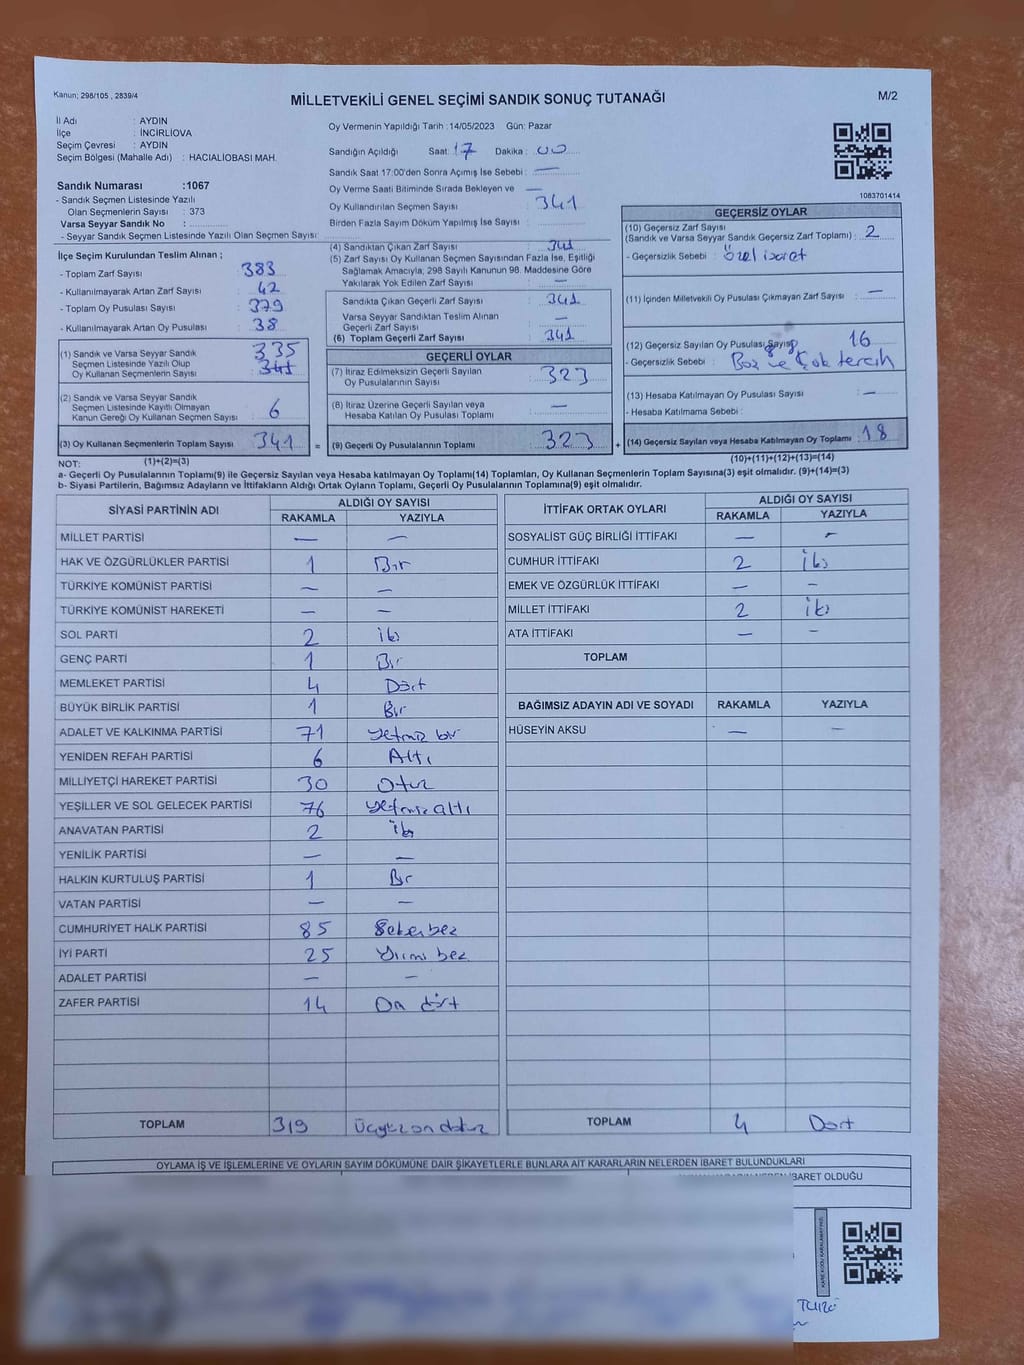 Kanun; 298/105 , 2839/4
MİLLETVEKİLİ GENEL SEÇİMİ SANDIK SONUÇ TUTANAĞI
M/2
İl Adı : AYDIN
İlçe : İNCİRLİOVA
Seçim Çevresi : AYDIN
Seçim Bölgesi (Mahalle Adı) : HACIALİOBASI MAH.
Sandık Numarası :1067
- Sandık Seçmen Listesinde Yazılı
Olan Seçmenlerin Sayısı : 373
Varsa Seyyar Sandık No :
- Seyyar Sandık Seçmen Listesinde Yazılı Olan Seçmen Sayısı:
Oy Vermenin Yapıldığı Tarih :14/05/2023 Gün: Pazar
Sandığın Açıldığı Saat: 17 Dakika : 00
Sandık Saat 17:00'den Sonra Açılmış İse Sebebi : —
Oy Verme Saati Bitiminde Sırada Bekleyen ve —
Oy Kullandırılan Seçmen Sayısı : 341
Birden Fazla Sayım Döküm Yapılmış İse Sayısı :
1083701414
İlçe Seçim Kurulundan Teslim Alınan ;
- Toplam Zarf Sayısı : 383
- Kullanılmayarak Artan Zarf Sayısı : 42
- Toplam Oy Pusulası : 379
- Kullanılmayarak Artan Oy Pusulası : 38
(1) Sandık ve Varsa Seyyar Sandık
Seçmen Listesinde Yazılı Olup
Oy Kullanan Seçmenlerin Sayısı : 335
(2) Sandık ve Varsa Seyyar Sandık
Seçmen Listesinde Kayıtlı Olmayan
Kanun Gereği Oy Kullanan Seçmen Sayısı : 6
(3) Oy Kullanan Seçmenlerin Toplam Sayısı : 341 =
(4) Sandıktan Çıkan Zarf Sayısı : 341
(5) Zarf Sayısı Oy Kullanan Seçmen Sayısından Fazla İse, Eşitliği
Sağlamak Amacıyla, 298 Sayılı Kanunun 98. Maddesine Göre
Yakılarak Yok Edilen Zarf Sayısı : —
Sandıkta Çıkan Geçerli Zarf Sayısı : 341
Varsa Seyyar Sandıktan Teslim Alınan
Geçerli Zarf Sayısı : —
(6) Toplam Geçerli Zarf Sayısı : 341
GEÇERLİ OYLAR
(7) İtiraz Edilmeksizin Geçerli Sayılan
Oy Pusulalarının Sayısı : 323
(8) İtiraz Üzerine Geçerli Sayılan veya
Hesaba Katılan Oy Pusulası Toplamı : —
(9) Geçerli Oy Pusulalarının Toplamı : 323 +
GEÇERSİZ OYLAR
(10) Geçersiz Zarf Sayısı
(Sandık ve Varsa Seyyar Sandık Geçersiz Zarf Toplamı) : 2
- Geçersizlik Sebebi : Özel işaret
(11) İçinden Milletvekili Oy Pusulası Çıkmayan Zarf Sayısı : —
(12) Geçersiz Sayılan Oy Pusulası Sayısı 16
- Geçersizlik Sebebi : Boş ve Çok tercih
(13) Hesaba Katılmayan Oy Pusulası Sayısı : —
- Hesaba Katılmama Sebebi :
(14) Geçersiz Sayılan veya Hesaba Katılmayan Oy Toplamı : 18
NOT: (1)+(2)=(3)
(10)+(11)+(12)+(13)=(14)
a- Geçerli Oy Pusulalarının Toplamı(9) ile Geçersiz Sayılan veya Hesaba katılmayan Oy Toplamı(14) Toplamları, Oy Kullanan Seçmenlerin Toplam Sayısına(3) eşit olmalıdır. (9)+(14)=(3)
b- Siyasi Partilerin, Bağımsız Adayların ve İttifakların Aldığı Ortak Oyların Toplamı, Geçerli Oy Pusulalarının Toplamına(9) eşit olmalıdır.
SİYASİ PARTİNİN ADI ALDIĞI OY SAYISI
RAKAMLA YAZIYLA
MİLLET PARTİSİ — —
HAK VE ÖZGÜRLÜKLER PARTİSİ 1 Bir
TÜRKİYE KOMÜNİST PARTİSİ — —
TÜRKİYE KOMÜNİST HAREKETİ — —
SOL PARTİ 2 iki
GENÇ PARTİ 1 Bir
MEMLEKET PARTİSİ 4 Dört
BÜYÜK BİRLİK PARTİSİ 1 Bir
ADALET VE KALKINMA PARTİSİ 71 yetmiş bir
YENİDEN REFAH PARTİSİ 6 Altı
MİLLİYETÇİ HAREKET PARTİSİ 30 Otuz
YEŞİLLER VE SOL GELECEK PARTİSİ 76 yetmiş altı
ANAVATAN PARTİSİ 2 iki
YENİLİK PARTİSİ — —
HALKIN KURTULUŞ PARTİSİ 1 Bir
VATAN PARTİSİ — —
CUMHURİYET HALK PARTİSİ 85 Seksen beş
İYİ PARTİ 25 Yirmi beş
ADALET PARTİSİ — —
ZAFER PARTİSİ 14 On dört
TOPLAM 319 Üçyüz on dokuz
İTTİFAK ORTAK OYLARI ALDIĞI OY SAYISI
RAKAMLA YAZIYLA
SOSYALİST GÜÇ BİRLİĞİ İTTİFAKI — —
CUMHUR İTTİFAKI 2 iki
EMEK VE ÖZGÜRLÜK İTTİFAKI — —
MİLLET İTTİFAKI 2 iki
ATA İTTİFAKI — —
TOPLAM
BAĞIMSIZ ADAYIN ADI VE SOYADI RAKAMLA YAZIYLA
HÜSEYİN AKSU — —
TOPLAM 4 Dört
OYLAMA İŞ VE İŞLEMLERİNE VE OYLARIN SAYIM DÖKÜMÜNE DAİR ŞİKAYETLERLE BUNLARA AİT KARARLARIN NELERDEN İBARET BULUNDUKLARI
İBARET OLDUĞU